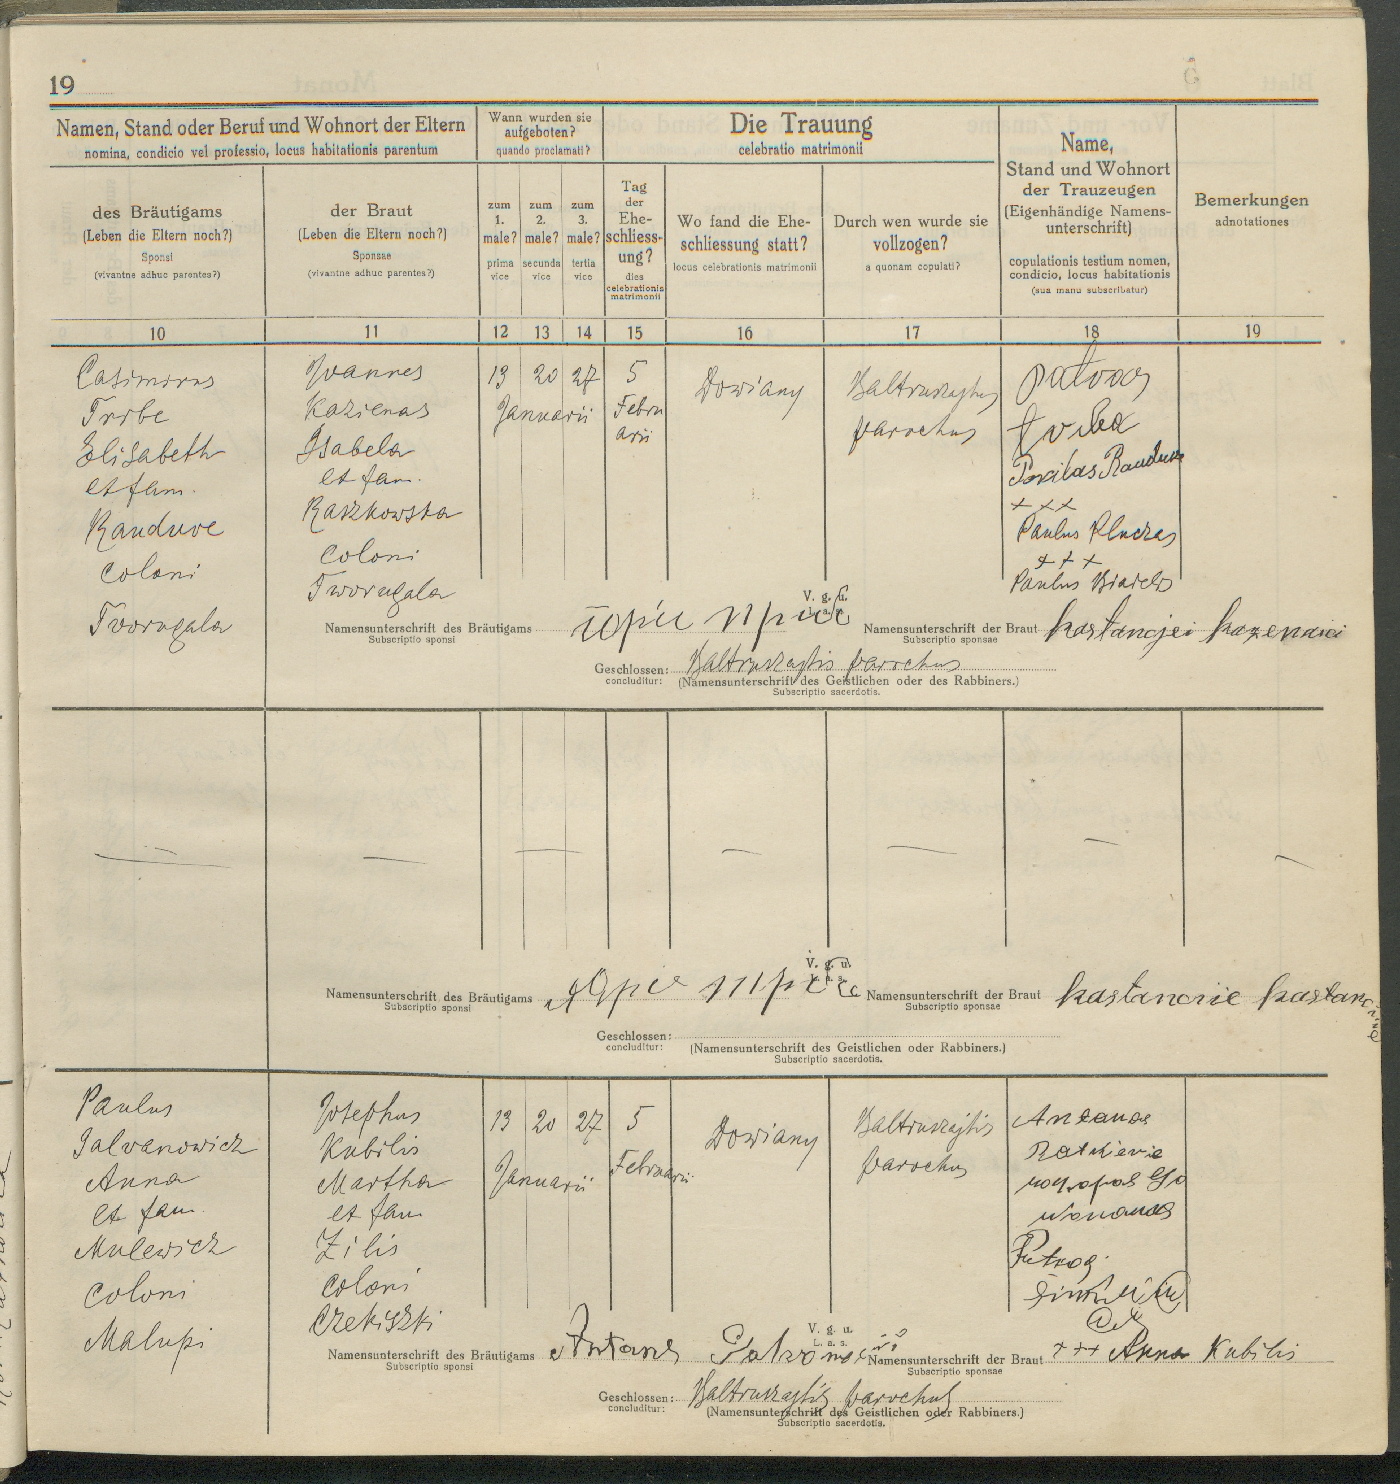 19
Namen, Stand oder Beruf und Wohnort der Eltern
nomina, condicio vel professio, locus habitationis parentum
Wann wurden sie
aufgeboten?
quando proclamati?
Die Trauung
celebratio matrimonii
Name,
Stand und Wohnort
der Trauzeugen
(Eigenhändige Namens-
unterschrift)
copulationis testium nomen,
condicio, locus habitationis
(sua manu subscribatur)
Bemerkungen
adnotationes
des Bräutigams
(Leben die Eltern noch?)
Sponsi
(vivantne adhuc parentes?)
der Braut
(Leben die Eltern noch?)
Sponsae
(vivantne adhuc parentes?)
zum
1.
male?
prima
vice
zum
2.
male?
secunda
vice
zum
3.
male?
tertia
vice
Tag
der
Ehe-
schliess-
ung?
dies
celebrationis
matrimonii
Wo fand die Ehe-
schliessung statt?
locus celebrationis matrimonii
Durch wen wurde sie
vollzogen?
a quonam copulati?
10 11 12 13 14 15 16 17 18 19
Casimirus
Elisabeth
et fam.
Randuve
coloni
Tworugala
Joannes
Kazienas
Isabela
et fam.
Raszkowska
coloni
Tworugala
13 20 27
Januarii
5
Febru
arii
Dowiany
Baltruszajtys
parochus
Randuve
+ + +
Paulus Kluczas
+ + +
Paulus
V. g. u.
L. a. s.
Namensunterschrift des Bräutigams
Subscriptio sponsi
Namensunterschrift der Braut
Subscriptio sponsae
Geschlossen: Baltruszajtis parochus
concluditur:
(Namensunterschrift des Geistlichen oder des Rabbiners.)
Subscriptio sacerdotis.
V. g. u.
L. a. s.
Namensunterschrift des Bräutigams
Subscriptio sponsi
Namensunterschrift der Braut
Subscriptio sponsae
Geschlossen:
concluditur:
(Namensunterschrift des Geistlichen oder Rabbiners.)
Subscriptio sacerdotis.
Paulus
Galvanowicz
Anna
et fam.
Mulewicz
coloni
Malupi
Josephus
Kubilis
Martha
et fam
Zilis
coloni
Czekiszki
13 20 27
Januarii
5
Februarii
Dowiany
Baltruszajtis
parochus
Antanas
V. g. u.
L. a. s.
Namensunterschrift des Bräutigams Antans
Subscriptio sponsi
Namensunterschrift der Braut +++ Anna Kubilis
Subscriptio sponsae
Geschlossen: Baltruszajtis parochus
concluditur:
(Namensunterschrift des Geistlichen oder Rabbiners.)
Subscriptio sacerdotis.